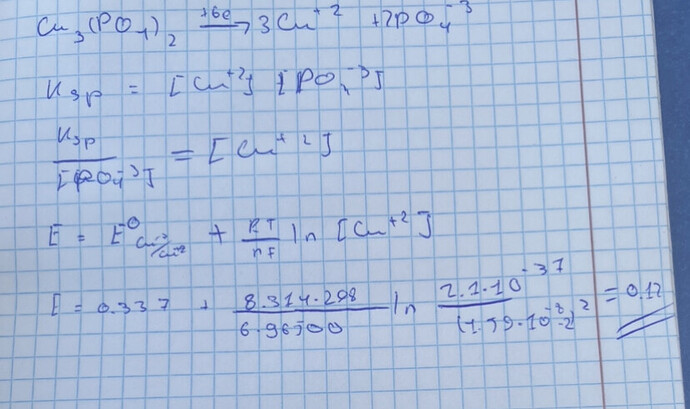 Cu₃(PO₄)₂ +6e → 3Cu⁺² + 2PO₄⁻³
Ksp = [Cu⁺²] [PO₄⁻³]
Ksp / [PO₄⁻³] = [Cu⁺²]
E = E⁰ + RT/nF ln [Cu⁺²]
E = 0.337 + 8.314·298 / 6·96500 ln 2.1·10⁻³⁷ / (1.59·10⁻⁸·2)² = 0.12